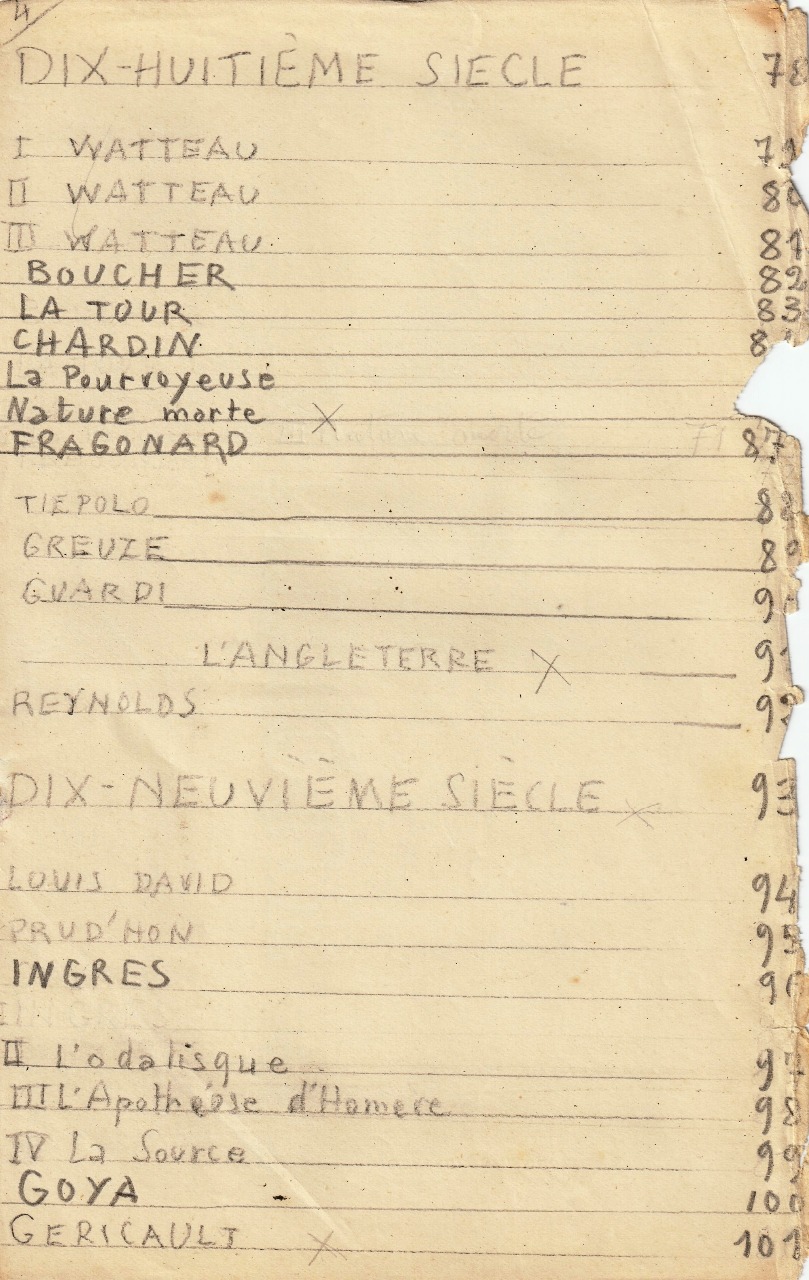 4
DIX-HUITIÈME SIECLE 78
I WATTEAU 79
II WATTEAU 80
III WATTEAU 81
BOUCHER 82
LA TOUR 83
CHARDIN 8
La Pourvoyeuse
Nature morte X
FRAGONARD 87
TIEPOLO 88
GREUZE 89
GUARDI 9
L'ANGLETERRE X 91
REYNOLDS 92
DIX-NEUVIÈME SIÈCLE X 93
LOUIS DAVID 94
PRUD'HON 95
INGRES 96
II L'odalisque 97
III L'Apothéose d'Homere 98
IV La Source 99
GOYA 100
GERICAULT X 101